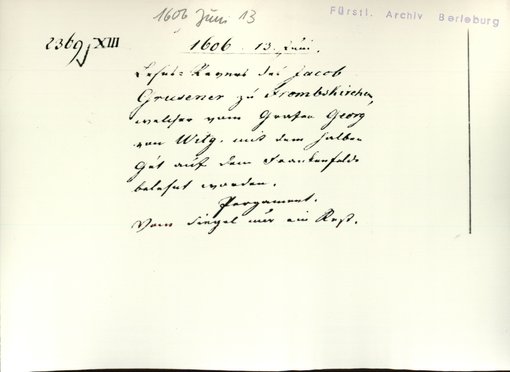 1606 Juni 13
Fürstl. Archiv Berleburg
2369 XIII
1606. 13. Juni.
Lehns-Revers des Jacob
Grusener zu Frombskirchen,
welcher vom Grafen Georg
von Witg. mit dem halben
Gut auf dem Frankenfelde
belehnt worden.
Pergament.
Vom Siegel nur ein Rest.